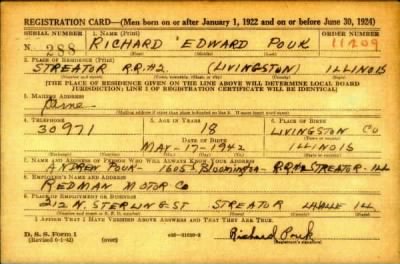 REGISTRATION CARD—(Men born on or after January 1, 1922 and on or before June 30, 1924)
SERIAL NUMBER 1. Name (Print) ORDER NUMBER
N. 288 RICHARD EDWARD POUK 11209
(First) (Middle) (Last)
2. Place of Residence (Print)
STREATOR R.R.#2 (LIVINGSTON) ILLINOIS
[THE PLACE OF RESIDENCE GIVEN ON THE LINE ABOVE WILL DETERMINE LOCAL BOARD
JURISDICTION; LINE 2 OF REGISTRATION CERTIFICATE WILL BE IDENTICAL]
3. Mailing Address
Same
[Mailing address if other than place indicated on line 2. If same insert word same]
4. Telephone 5. Age in Years 6. Place of Birth
30971 18 LIVINGSTON CO
Date of Birth
MAY-17-1942 ILLINOIS
7. Name and Address of Person Who Will Always Know Your Address
ANDREW POUK - 1605 S Bloomington - R.R.#2 STREATOR - ILL
8. Employer's Name and Address
REDMAN MOTOR CO
9. Place of Employment or Business
212 N. STERLING ST STREATOR LASALLE ILL
I Affirm That I Have Verified Above Answers and That They Are True.
D. S. S. Form 1
(Revised 6-1-42) (over) Richard Pouk
(Registrant's signature)